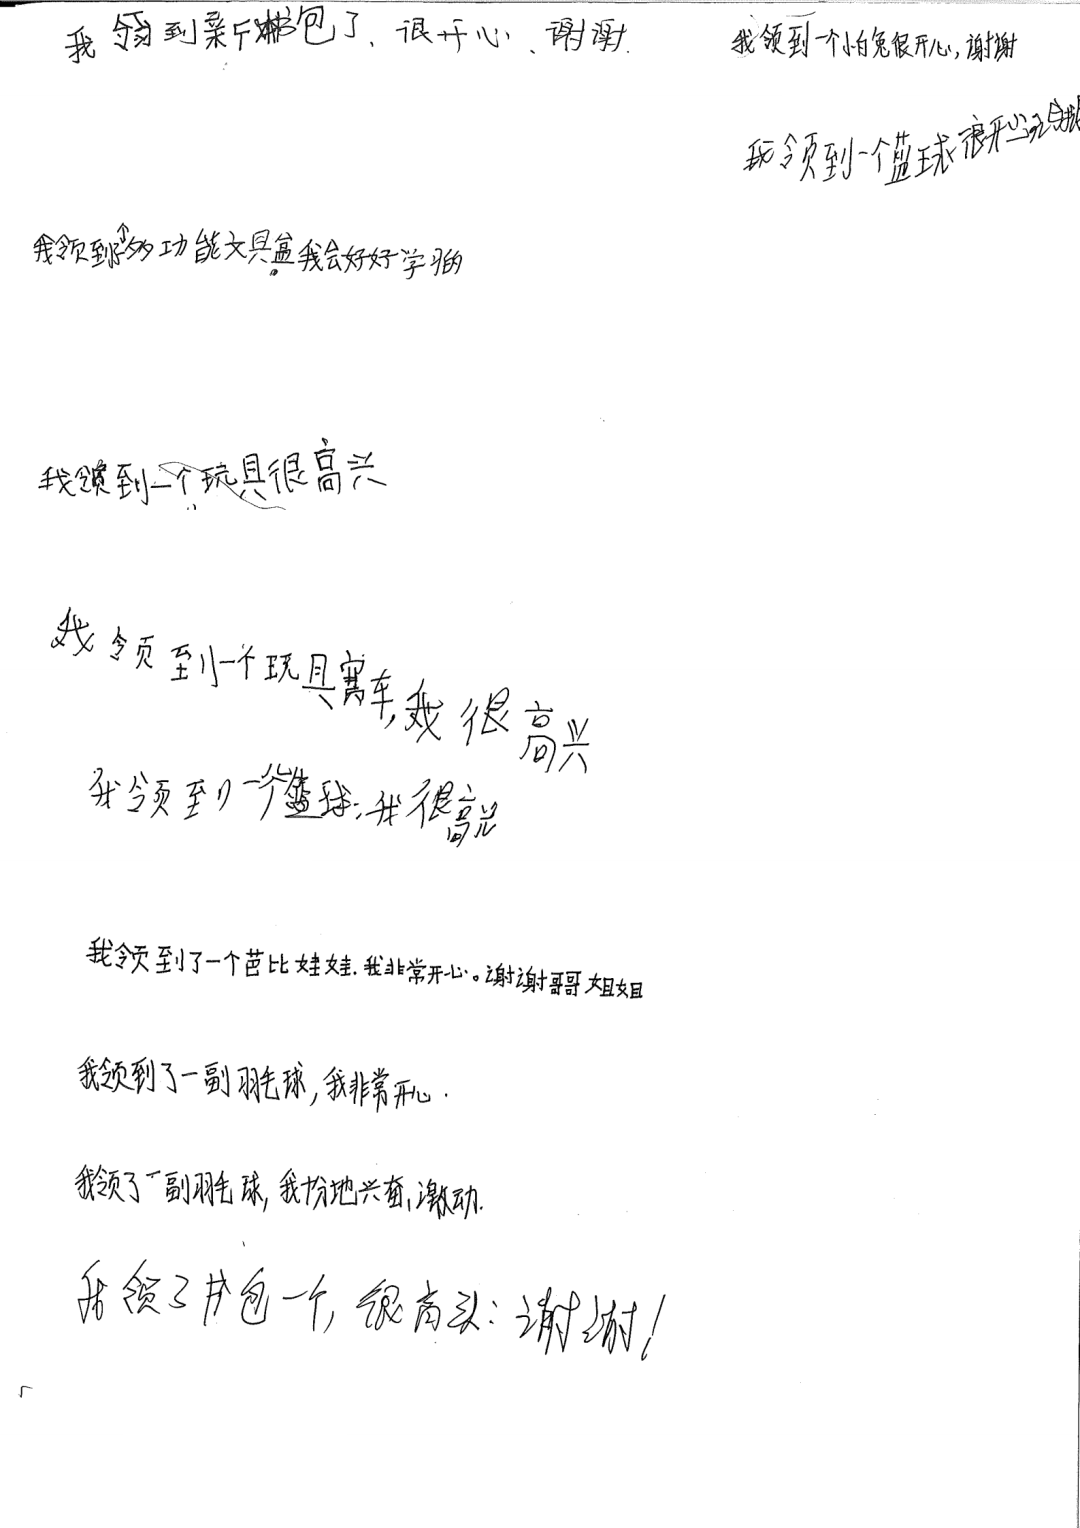 我领到新书包了、很开心、谢谢.
我领到一个小白兔很开心,谢谢
我领到一个篮球很开心
我领到多功能文具盒我会好好学习的
我领到一个玩具很高兴
我领到一个玩具赛车,我很高兴
我领到一个篮球,我很高兴
我领到了一个芭比娃娃.我非常开心。谢谢哥哥姐姐
我领到了一副羽毛球,我非常开心.
我领了一副羽毛球,我十分地兴奋、激动.
我领了书包一个,很高兴:谢谢!